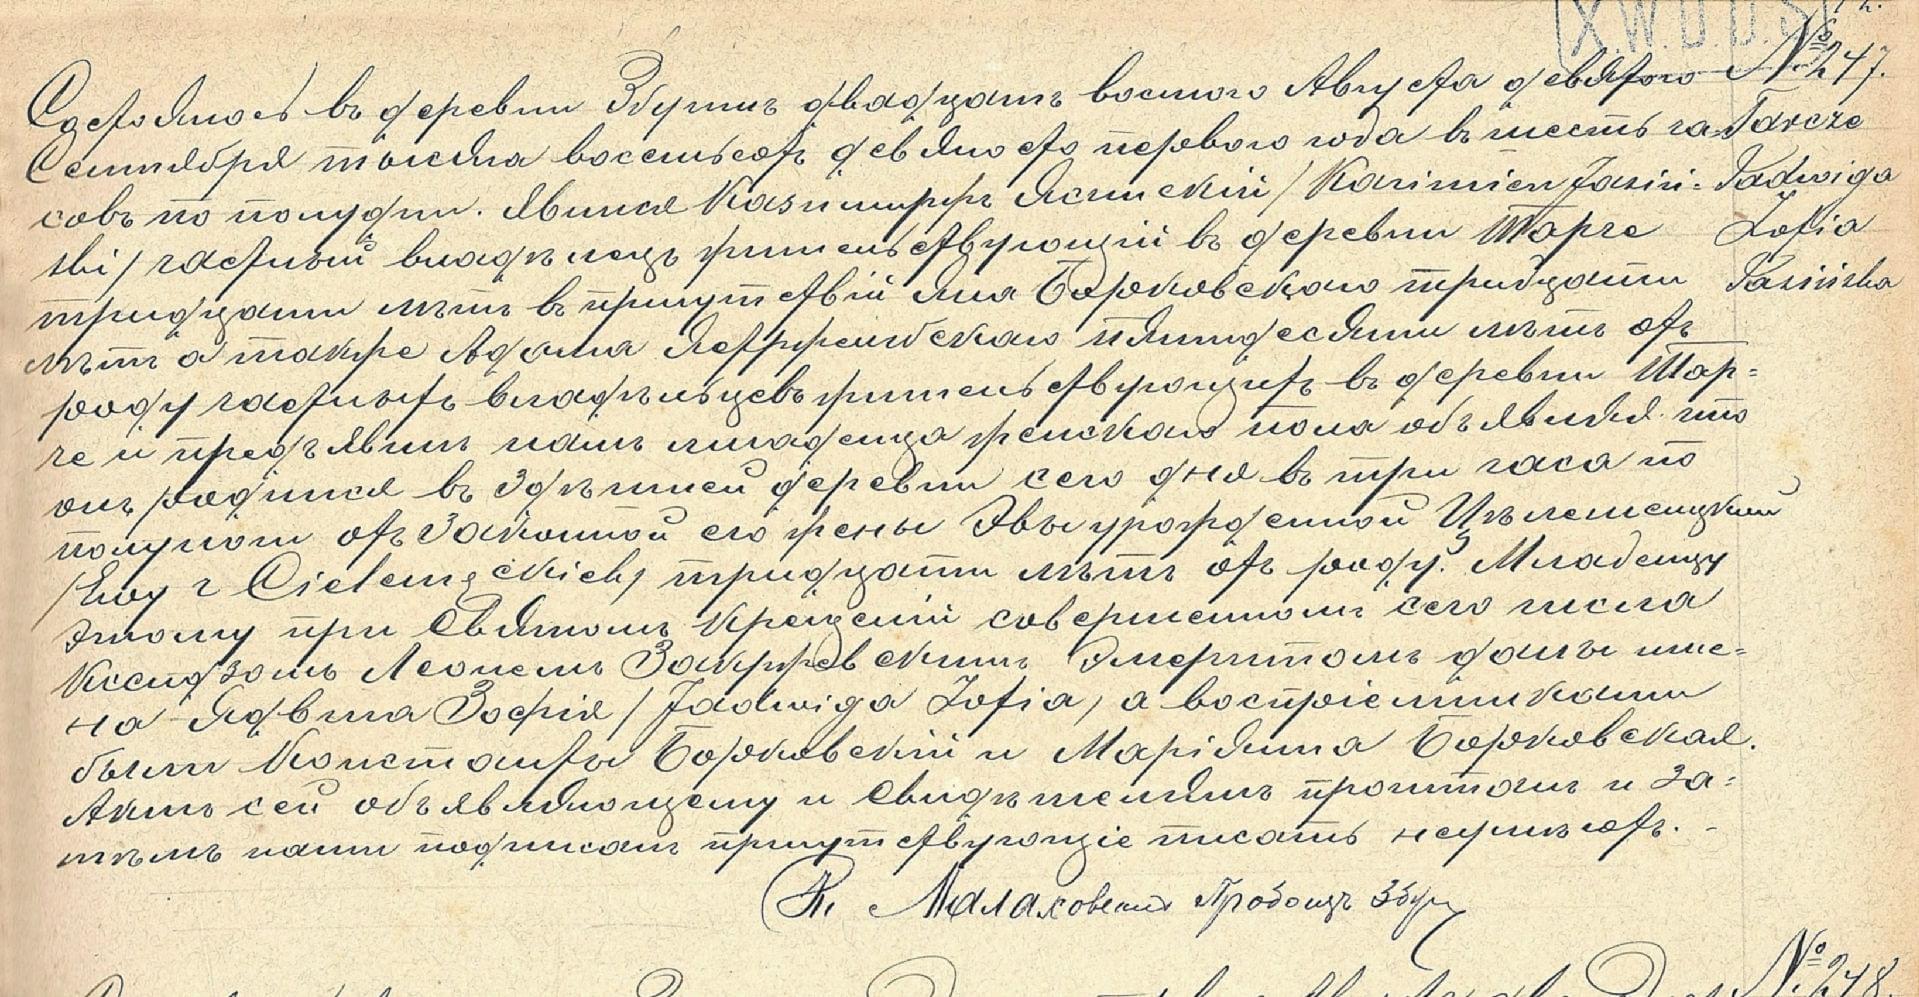 X.W.D.D.S
№ 247.
Tarcze
Jadwiga
Zofia
Jasińska
Состоялось въ деревни Збучинѣ двадцать восмого Августа девятого
Сентября тысяча восемьсотъ девяносто перваго года въ шесть ча-
совъ по полудни. Явился Казимиръ Ясинскій /Kazimierz Jasiń-
ski/ частный владѣлецъ жительствующій въ деревни Тарче
тридцати лѣтъ въ присутствіи Яна Борковскаго тридцати
лѣтъ а также Адама пятидесяти лѣтъ отъ
роду частныхъ владѣльцевъ жительствующихъ въ деревни Тар-
че и предъявилъ намъ младенца женскаго пола объявляя что
онъ родился въ здѣшней деревни сего дня въ три часа по
полуночи отъ законной его жены Эвы урожденной Цѣлеменцкихъ
/Ewy z Cielemęckich/ тридцати лѣтъ отъ роду. Младенцу
этому при Святомъ Крещеніи совершенномъ сего числа
Ксендзомъ Леономъ Закржевскимъ Эмеритомъ даны име-
на Ядвига Зофія /Jadwiga Zofia/ а воспріемниками
были Константы Борковскій и Маріянна Борковская.
Актъ сей объявляющему и свидѣтелямъ прочитанъ и за-
тѣмъ нами подписанъ присутствующіе писать неумѣютъ. -
Кс. Малаховскій Пробощъ Збуч
№ 248.